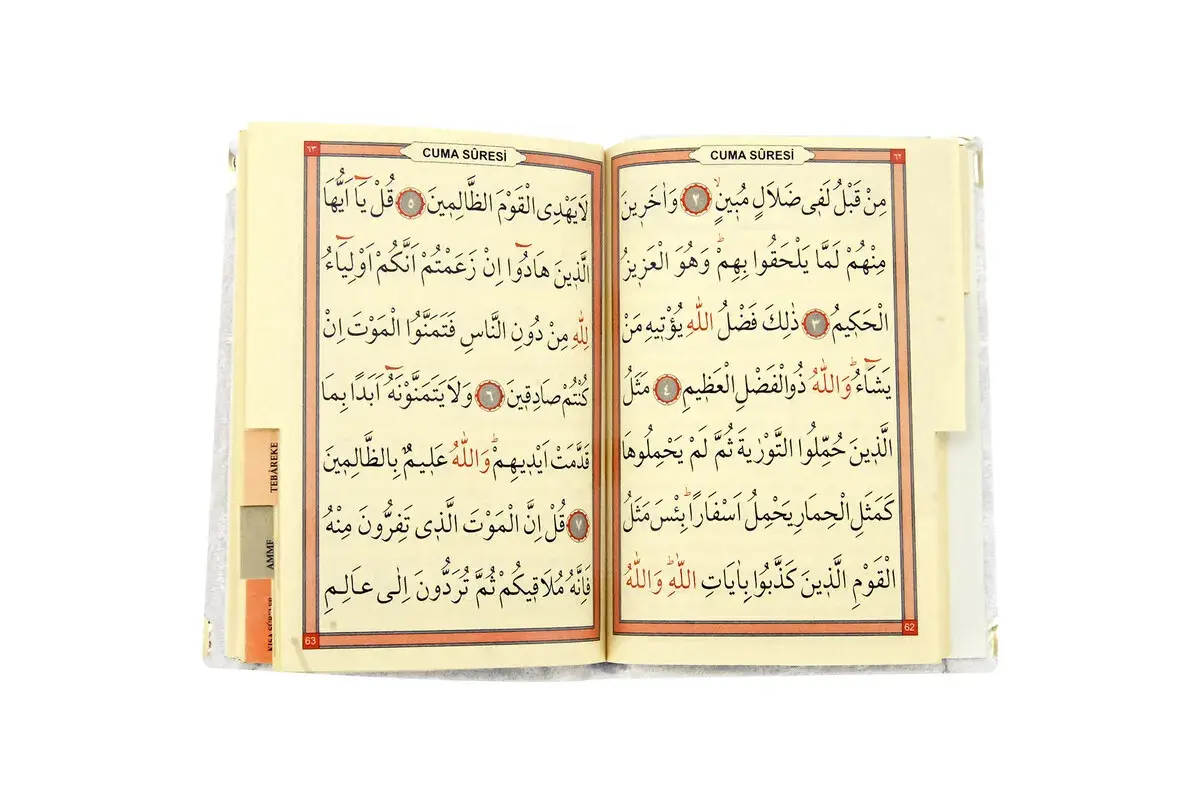 ٦٢
CUMA SÛRESİ
مِنْ قَبْلُ لَفٖى ضَلَالٍ مُبٖينٍۙ ٢ وَاٰخَرٖينَ
مِنْهُمْ لَمَّا يَلْحَقُوا بِهِمْۜ وَهُوَ الْعَزٖيزُ
الْحَكٖيمُ ٣ ذٰلِكَ فَضْلُ اللّٰهِ يُؤْتٖيهِ مَنْ
يَشَٓاءُۜ وَاللّٰهُ ذُوالْفَضْلِ الْعَظٖيمِ ٤ مَثَلُ
الَّذٖينَ حُمِّلُوا التَّوْرٰيةَ ثُمَّ لَمْ يَحْمِلُوهَا
كَمَثَلِ الْحِمَارِ يَحْمِلُ اَسْفَارًاۜ بِئْسَ مَثَلُ
الْقَوْمِ الَّذٖينَ كَذَّبُوا بِاٰيَاتِ اللّٰهِۜ وَاللّٰهُ
62
٦٣
CUMA SÛRESİ
لَا يَهْدِى الْقَوْمَ الظَّالِمٖينَ ٥ قُلْ يَٓا اَيُّهَا
الَّذٖينَ هَادُٓوا اِنْ زَعَمْتُمْ اَنَّكُمْ اَوْلِيَٓاءُ
لِلّٰهِ مِنْ دُونِ النَّاسِ فَتَمَنَّوُا الْمَوْتَ اِنْ
كُنْتُمْ صَادِقٖينَ ٦ وَلَا يَتَمَنَّوْنَهُٓ اَبَدًا بِمَا
قَدَّمَتْ اَيْدٖيهِمْۜ وَاللّٰهُ عَلٖيمٌ بِالظَّالِمٖينَ
٧ قُلْ اِنَّ الْمَوْتَ الَّذٖى تَفِرُّونَ مِنْهُ
فَاِنَّهُ مُلَاقٖيكُمْ ثُمَّ تُرَدُّونَ اِلٰى عَالِمِ
63
TEBÂREKE
AMME